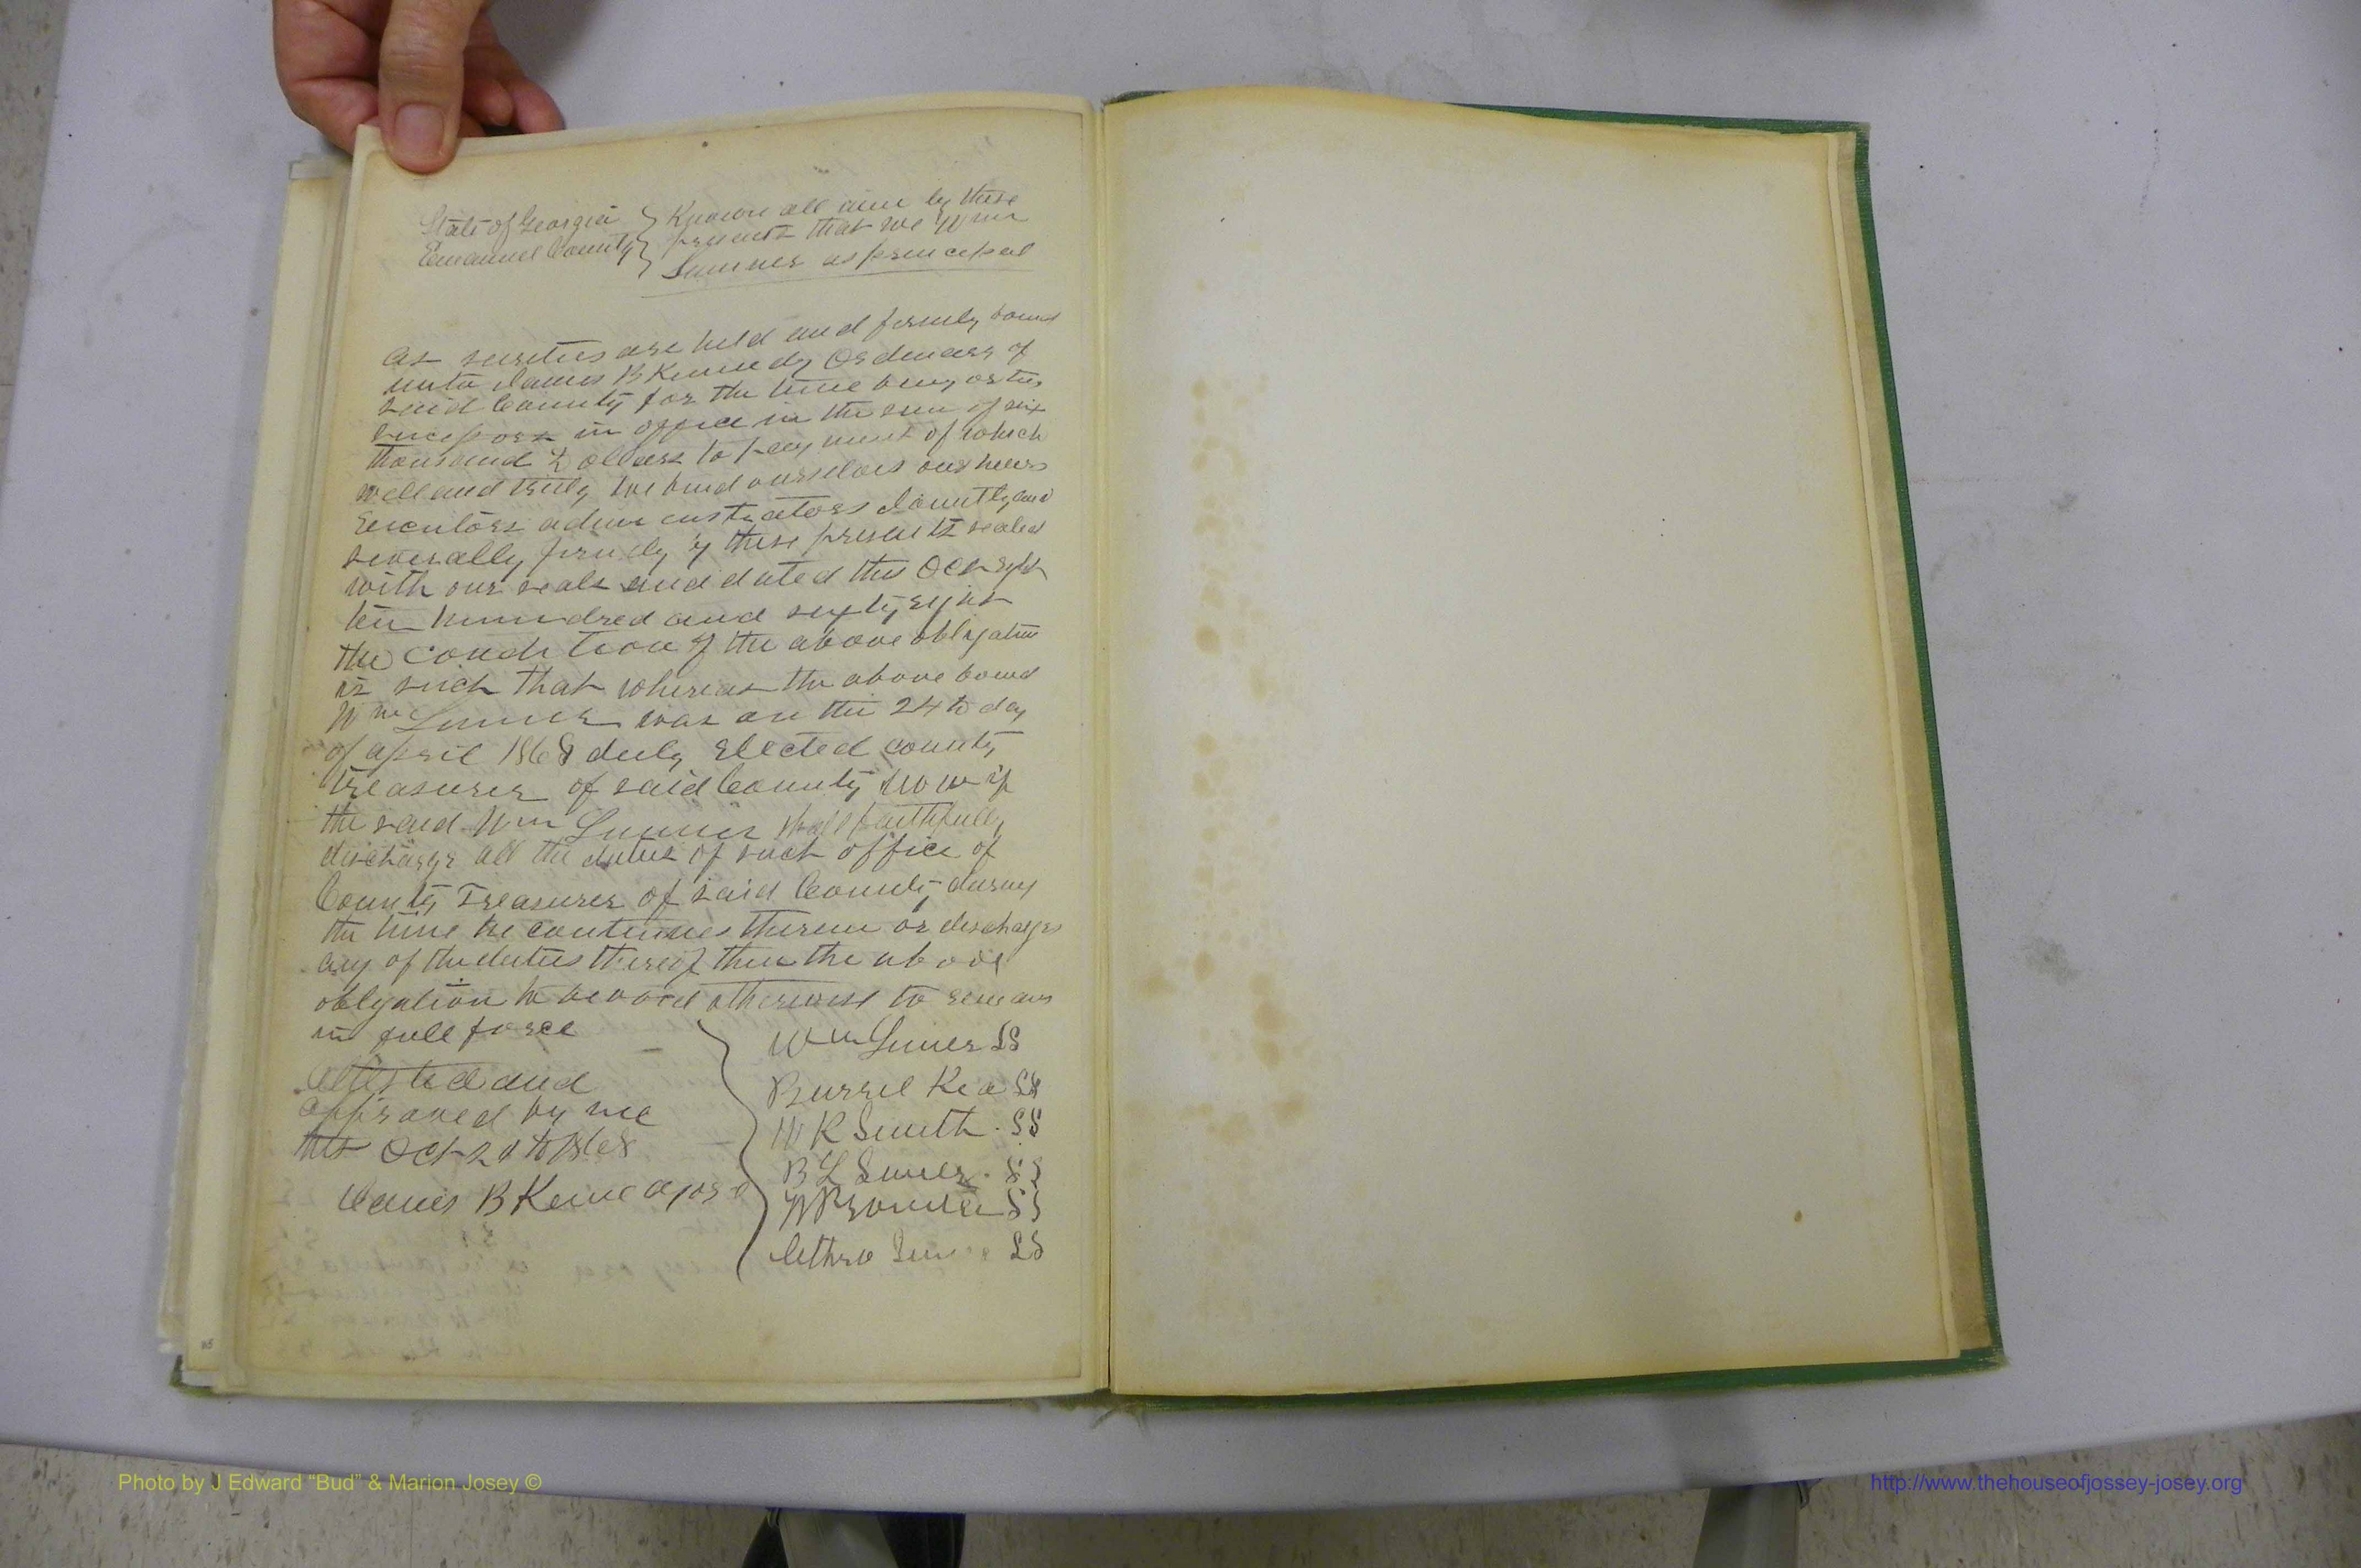 State of Georgia } Known all men by these
Emanuel County } presents that we Wm
Sumner as principal
as sureties are held and firmly bound
unto James B Kennedy Ordinary of
said County for the time being or his
in office in the sum of six
thousand Dollars to payment of which
well and truly we bind ourselves our heirs
Executors administrators Jointly and
severally firmly by these presents sealed
with our seals and dated this Oct
hundred and sixty eight
the condition of the above obligation
is such that whereas the above bound
Wm Sumner was on the 24th day
of april 1868 duly Elected county
treasurer of said County now if
the said Wm Sumner shall faithfully
discharge all the duties of such office of
County Treasurer of said County during
the time he continues therein or discharges
any of the duties thereof then the above
obligation to be void otherwise to remain
in full force
Attested and
approved by me
this Oct 1868
James B
Wm Sumer LS
Burrel Kea LS
W R Smith LS
B L Sumer LS
LS
Jethro LS
Photo by J Edward “Bud” & Marion Josey ©
http://www.thehouseofjossey-josey.org